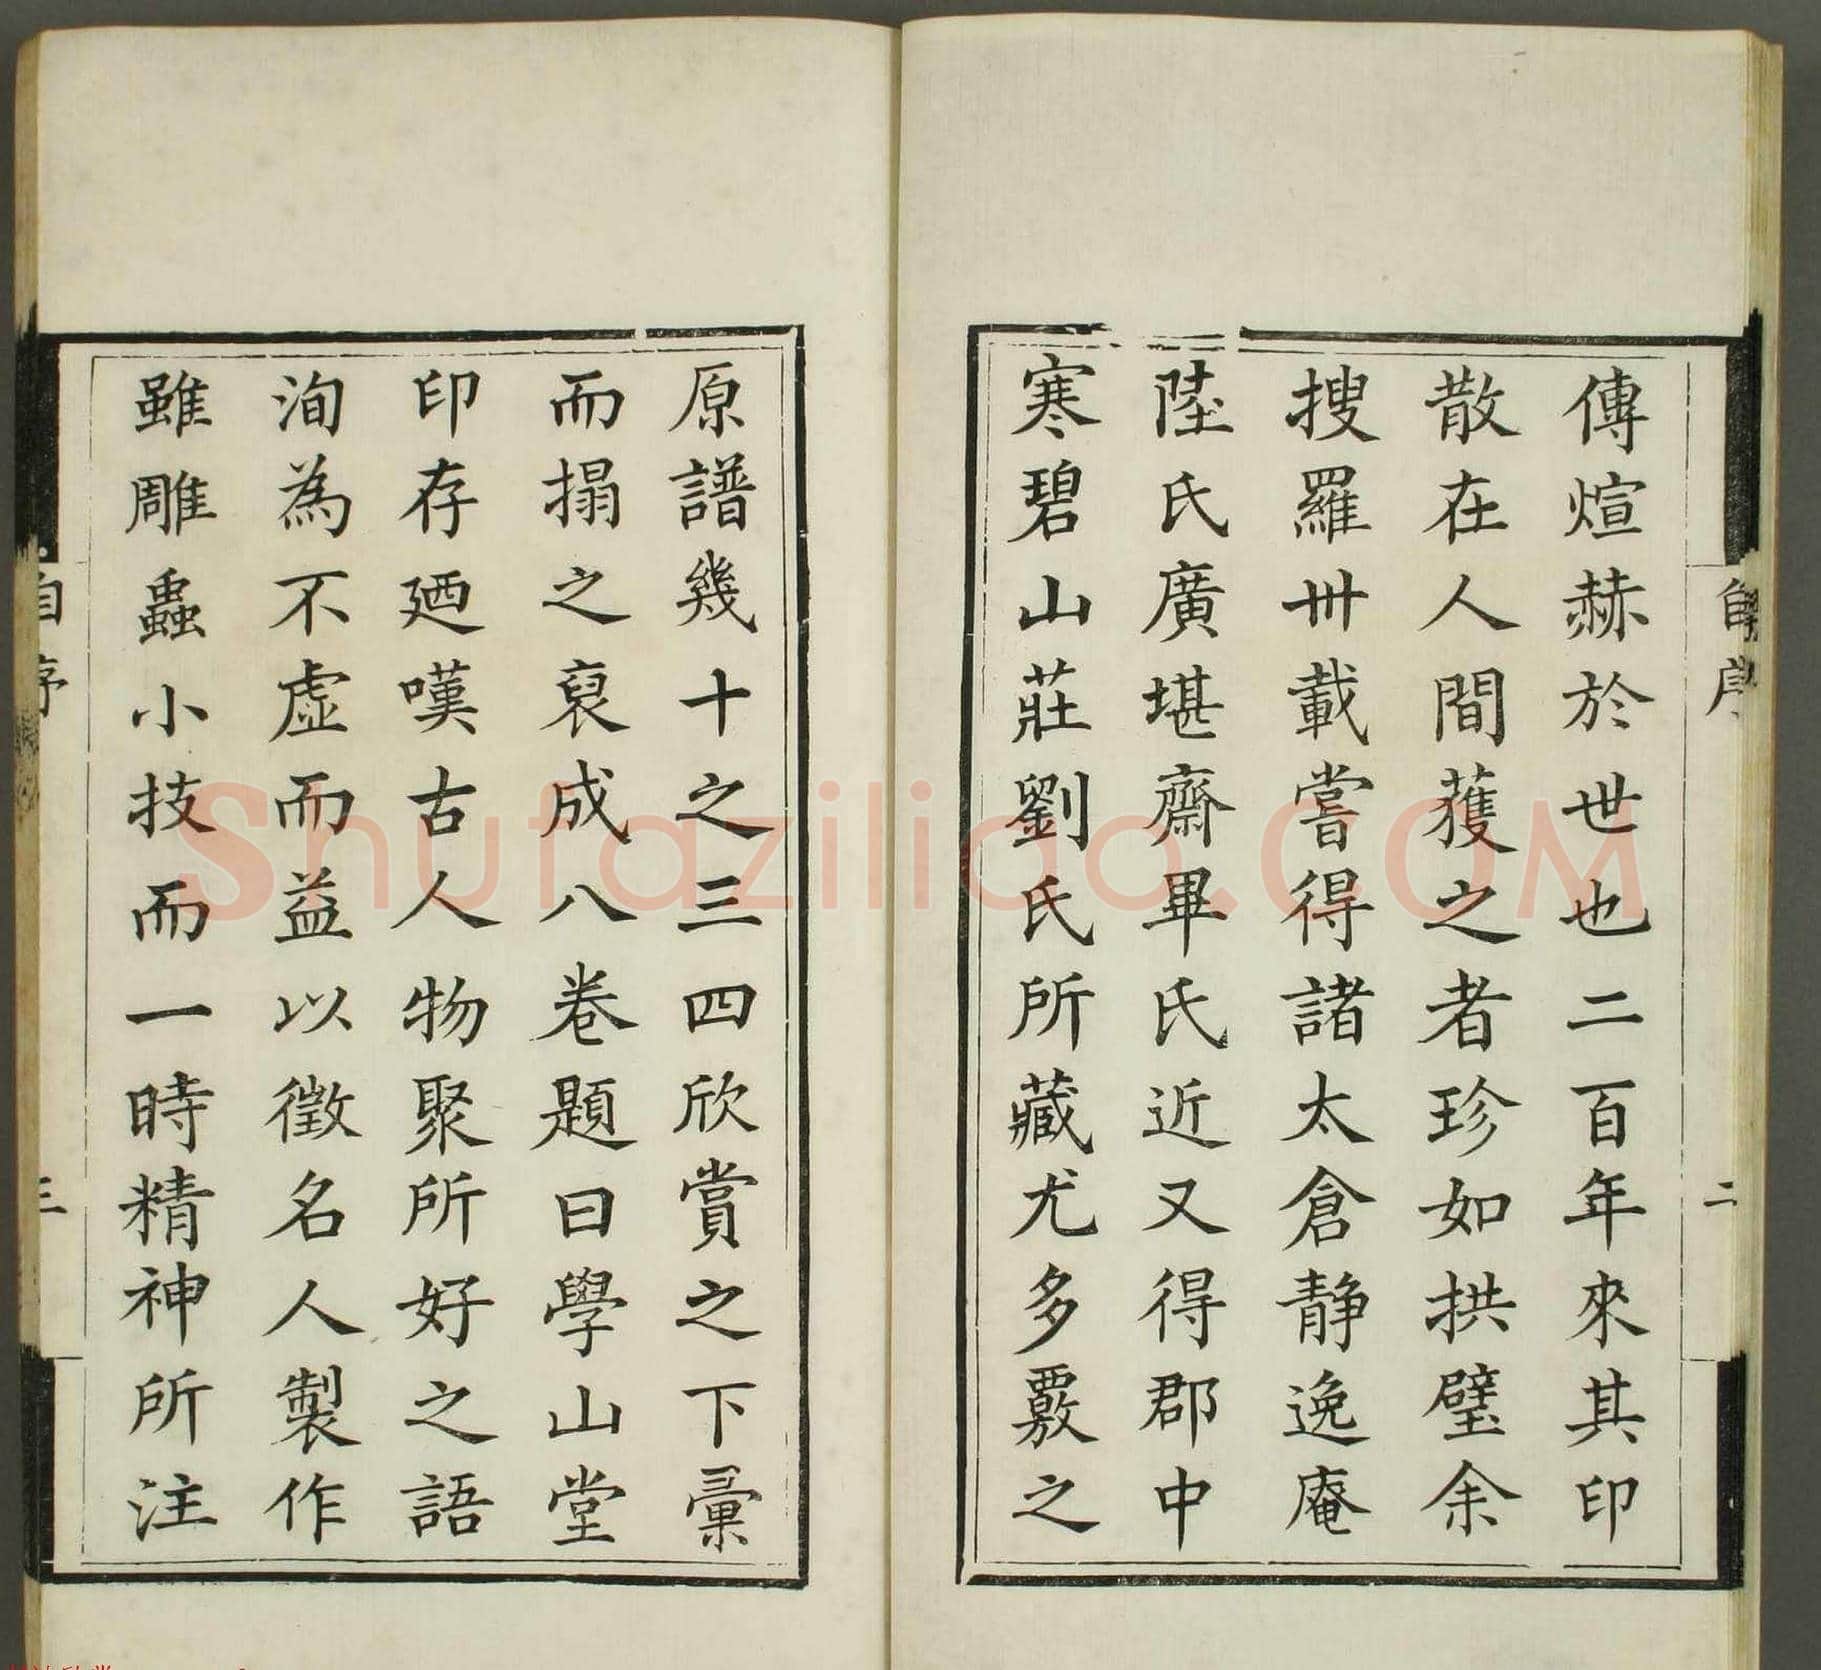 傳煊赫於世也二百年來其印
散在人間獲之者珍如拱璧余
搜羅卅載嘗得諸太倉靜逸庵
陸氏廣堪齋畢氏近又得郡中
寒碧山莊劉氏所藏尤多覈之
自序
二
原譜幾十之三四欣賞之下彙
而搨之裒成八卷題曰學山堂
印存廼嘆古人物聚所好之語
洵為不虛而益以徵名人製作
雖雕蟲小技而一時精神所注
自序
三
Shufaziliao.COM